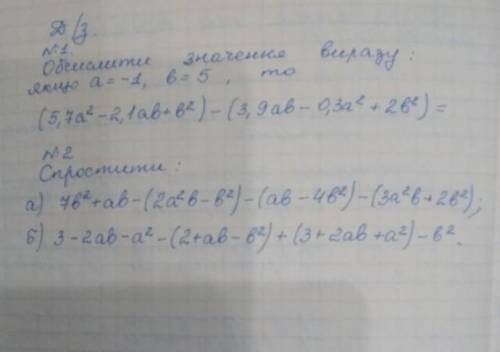 Д/з.
№1.
Обчислити значення виразу:
якщо a=-1, b=5, то
(5,7a²-2,1ab+b²)-(3,9ab-0,3a²+2b²)=
№2
Спростити:
а) 7b²+ab-(2a²b-b²)-(ab-4b²)-(3a²b+2b²);
б) 3-2ab-a²-(2+ab-b²)+(3+2ab+a²)-b².